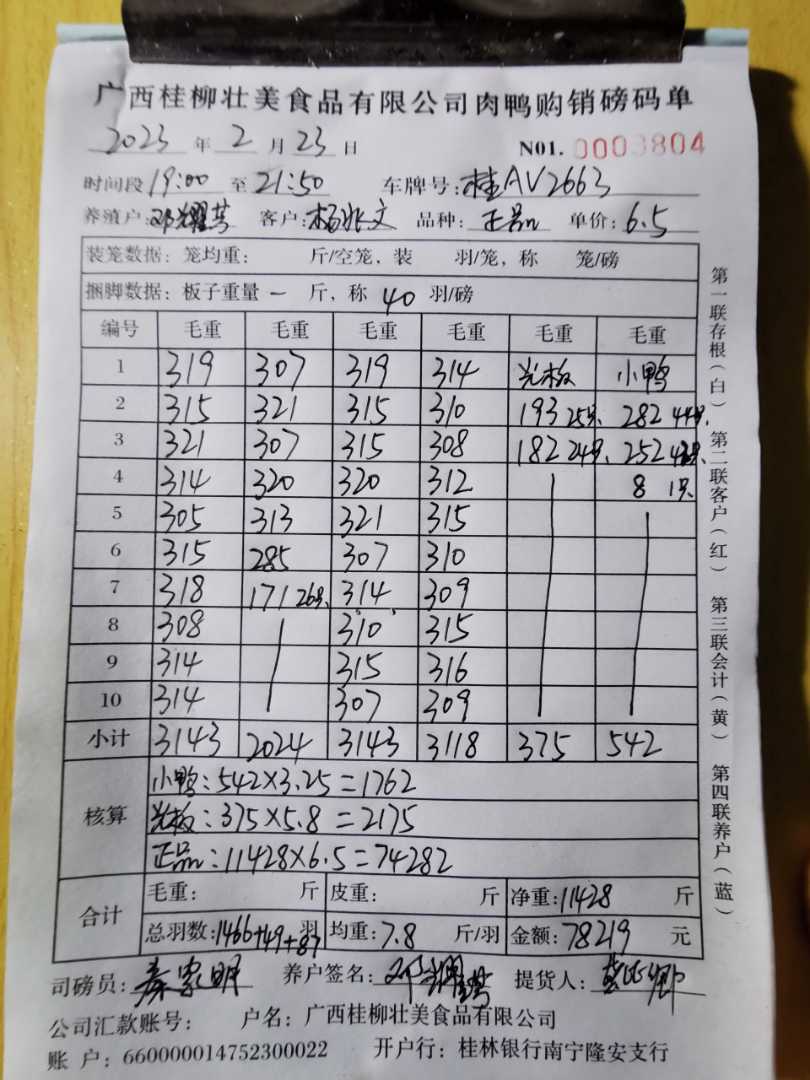 广西桂柳壮美食品有限公司肉鸭购销磅码单
2023 年 2 月 23 日 N01. 0003804
时间段 19:00 至 21:50 车牌号: 桂AV2663
养殖户: 邓耀 客户: 杨兆文 品种: 正品 单价: 6.5
装笼数据: 笼均重: 斤/空笼, 装 羽/笼, 称 笼/磅
捆脚数据: 板子重量 一 斤, 称 40 羽/磅
编号 毛重 毛重 毛重 毛重 毛重 毛重
1 319 307 319 314 光板 小鸭
2 315 321 315 310 193 25只. 282 44只.
3 321 307 315 308 182 24只. 252 只.
4 314 320 320 312 8 1只.
5 305 313 321 315
6 315 285 307 310
7 318 171 26只. 314 309
8 308 310 315
9 314 315 316
10 314 307 309
小计 3143 2024 3143 3118 375 542
核算
小鸭: 542×3.25=1762
光板: 375×5.8=2175
正品: 11428×6.5=74282
合计
毛重: 斤 皮重: 斤 净重: 11428 斤
总羽数: 1466+49+87 羽 均重: 7.8 斤/羽 金额: 78219 元
司磅员: 秦家明 养户签名: 邓耀 提货人:
公司汇款账号: 户名: 广西桂柳壮美食品有限公司
账 户: 660000014752300022 开户行: 桂林银行南宁隆安支行
第一联存根(白) 第二联客户(红) 第三联会计(黄) 第四联养户(蓝)